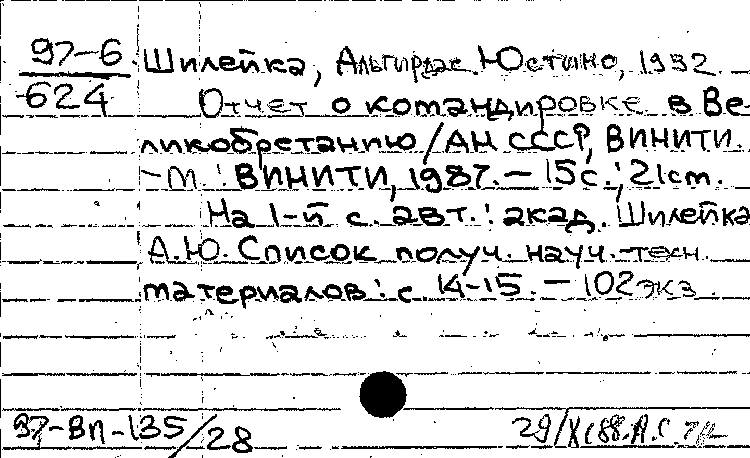 97-6 Шилейка, Альгирдас Юстино, 1932
624 Отчет о командировке в Ве
ликобретанию / АН СССР, ВИНИТИ.
– М.: ВИНИТИ, 1987. – 15 с.; 21 cm.
На 1-й с. авт.: акад. Шилейка
А.Ю. Список получ. науч.-техн.
материалов: с. 14-15. – 102 экз.
97-Вп-135/28 29/X 88. А.С.